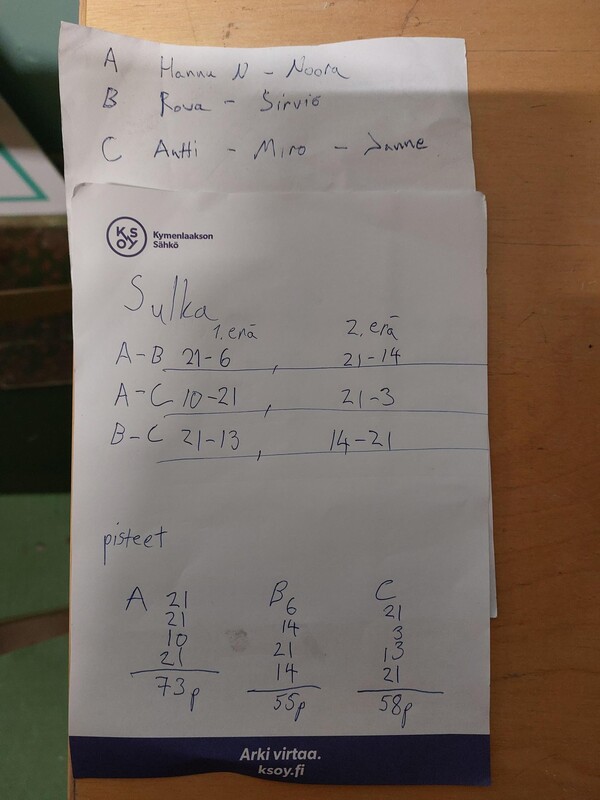 A Hannu N - Noora
B Rova - Sirviö
C Antti - Miro - Janne
KSOY Kymenlaakson
Sähkö
Sulka
1. erä 2. erä
A-B 21-6, 21-14
A-C 10-21, 21-3
B-C 21-13, 14-21
pisteet
A B C
21 6 21
21 14 3
10 21 13
21 14 21
73p 55p 58p
Arki virtaa.
ksoy.fi